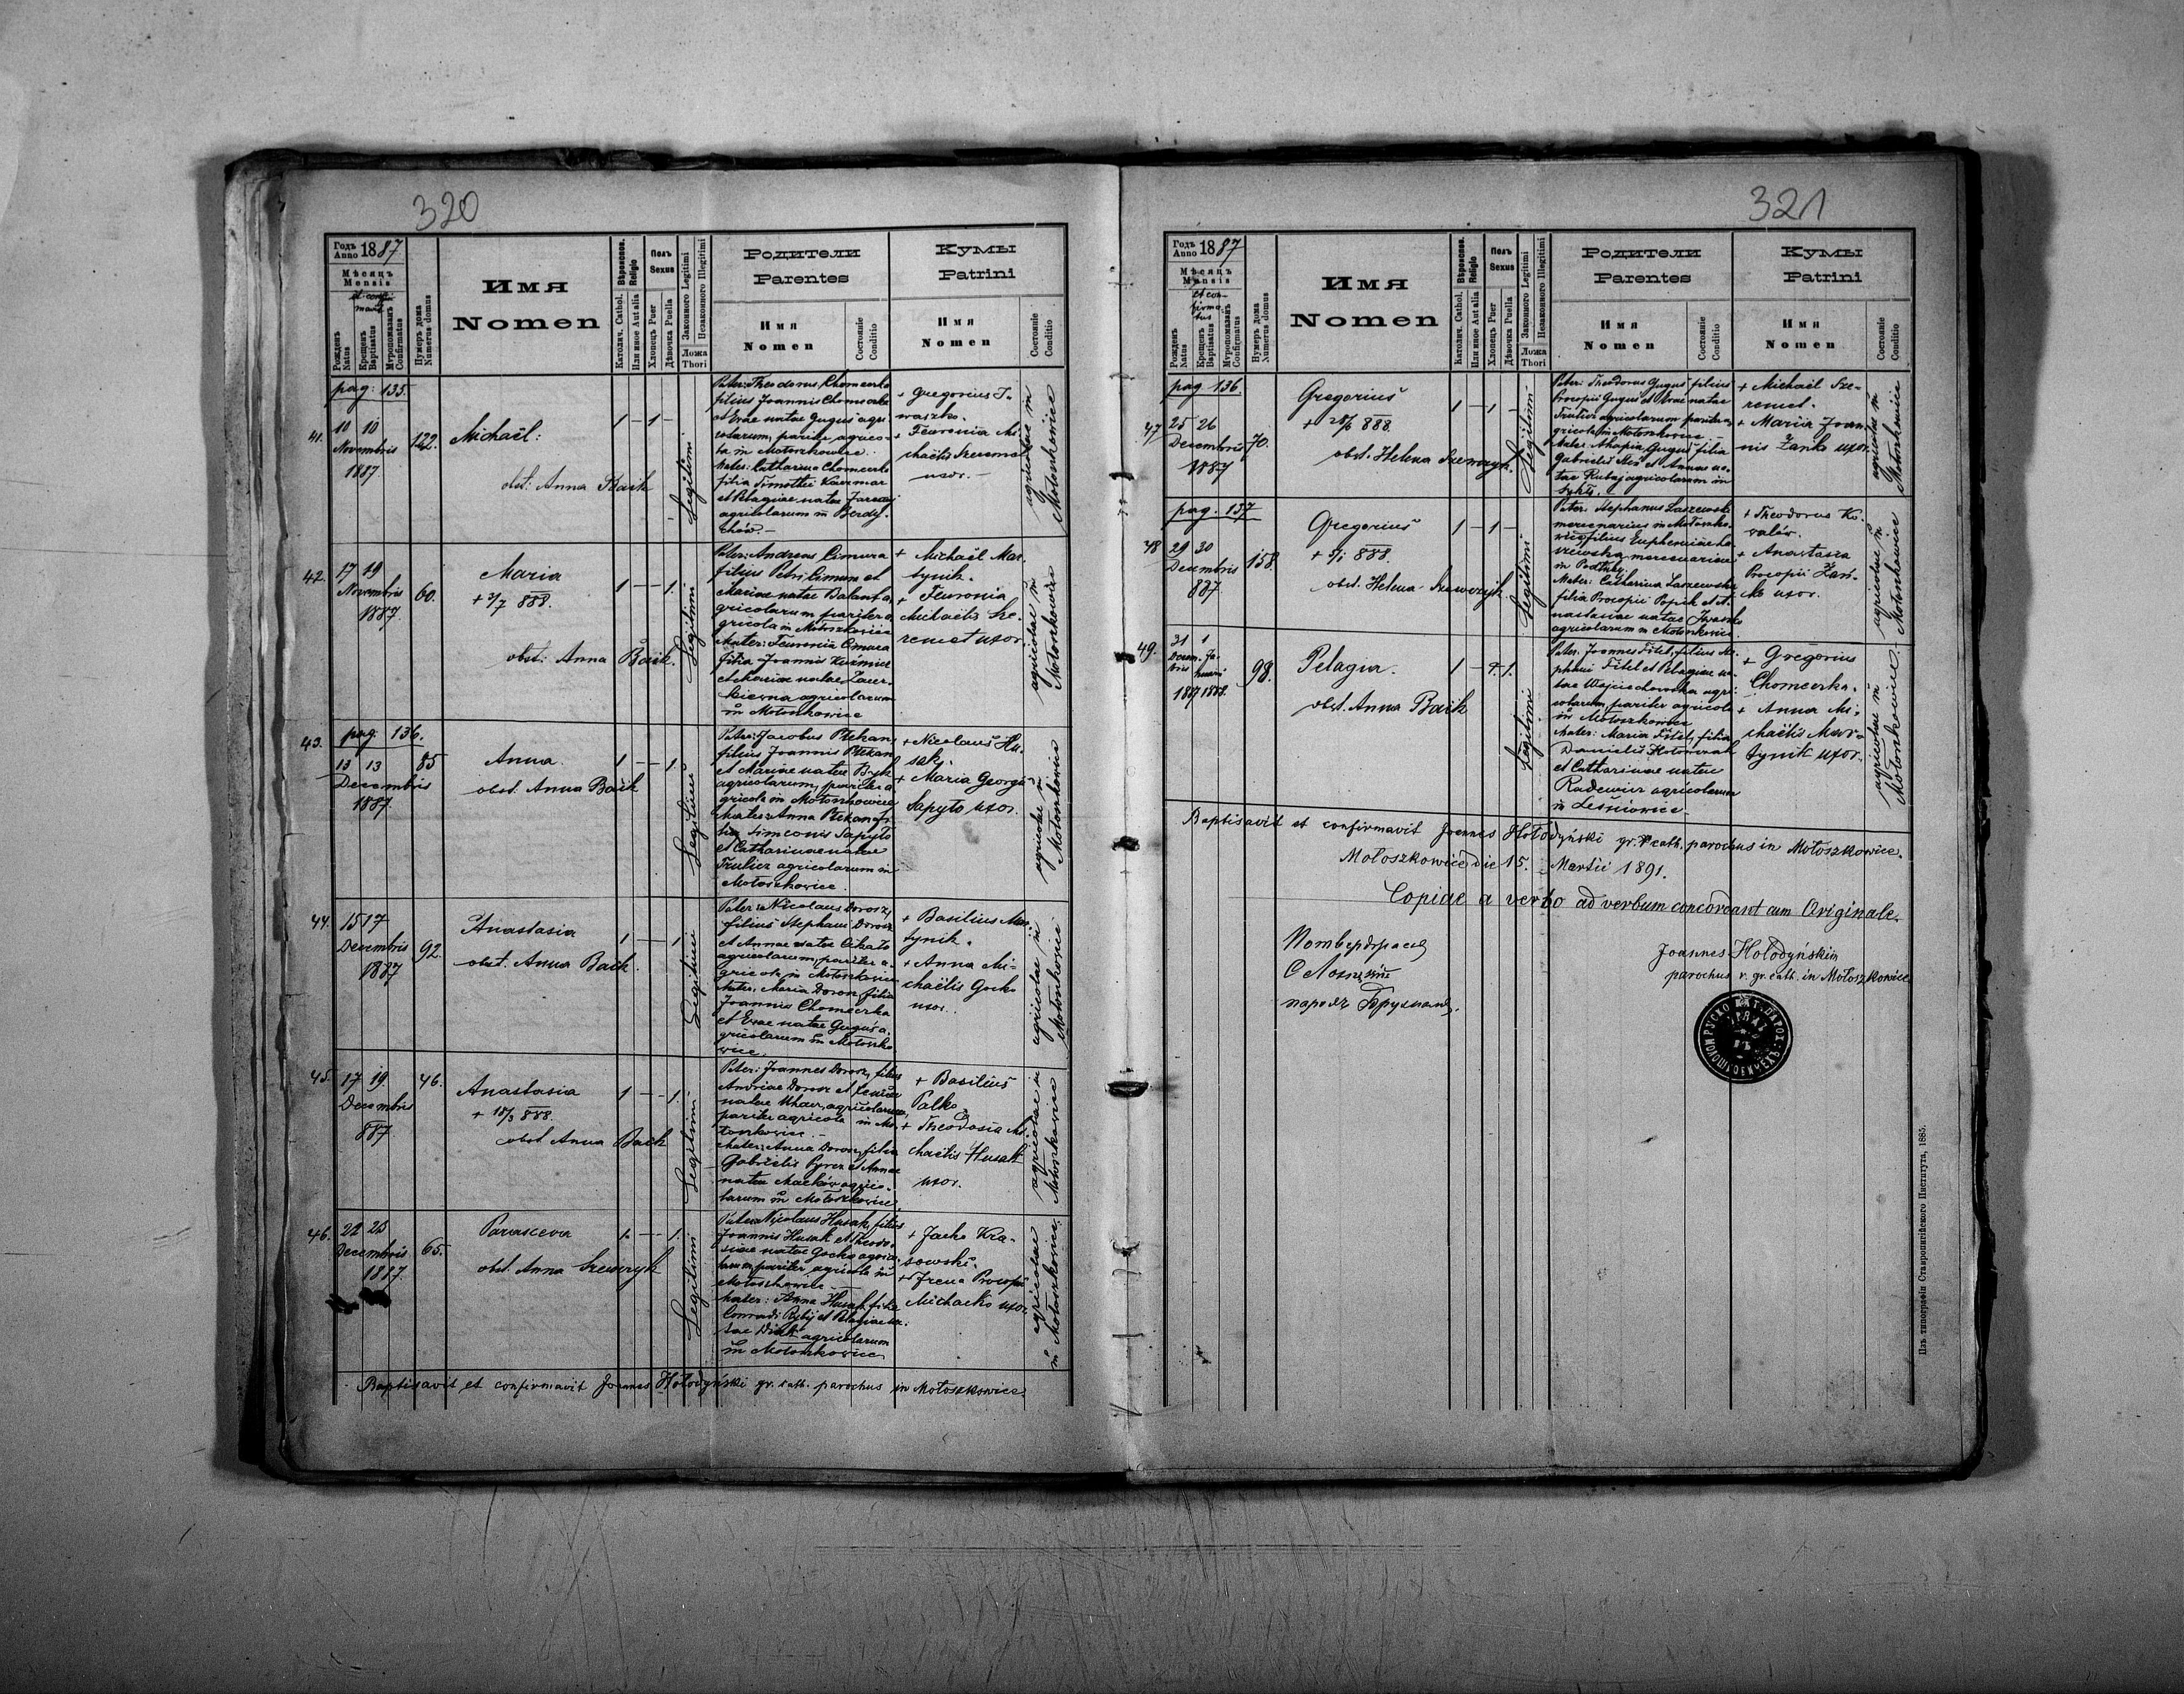 320
Годъ 1887
Anno
Мѣсяцъ
Mensis
Рожденъ
Natus
Крещенъ
Baptisatus
Мѵропомазанъ
Confirmatus
Нумеръ дома
Numerus domus
Имя
Nomen
Вѣроиспов.
Religio
Католич. Cathol.
Или иное Aut alia
Полъ
Sexus
Хлопецъ Puer
Дѣвочка Puella
Законного Legitimi
Незаконного Illegitimi
Ложа
Thori
Родители
Parentes
Имя
Nomen
Состояніе
Conditio
Кумы
Patrini
Имя
Nomen
Состояніе
Conditio
pag: 135.
41.
10 10
Novembris
1887.
122.
Michaël:
obst: Anna Baik
1 – 1 –
Legitimi
Pater: Theodorus Chomeczka
filius Joannis Chomeczka
et Evae natae Guguś agri
colarum, pariter agrico-
la in Mołoszkowice.
Mater: Catharina Chomeczka
filia Timothei Kaczmar
et Pelagiae natae
agricolarum in Berdy-
chów. –
+ Gregorius I-
waszko.
+ Feuronia Mi-
chaëlis Szeremet
uxor. –
agricolae in
Mołoszkowice
42.
17 19
Novembris
1887.
60.
Maria
+ 3/7 888.
obst: Anna Baik.
1 – – 1.
Legitimi
Pater: Andreas Cimura
filius Petri Cimura et
Mariae natae Bałant a-
gricolarum pariter a-
gricola in Mołoszkowice
Mater: Feuronia Cimura
filia Joannis Kuśmicz
et Mariae natae
agricolarum
in Mołoszkowice
+ Michaël Mar-
tynik.
+ Feuronia
Michaëlis Sze-
remet uxor
agricolae in
Mołoszkowice
43.
pag: 136.
13 13
Decembris
1887.
85
Anna.
obst. Anna Baik
1 – – 1.
Legitimi
Pater: Jacobus Ptekan
filius Joannis Ptekan
et Mariae natae Bryk
agricolarum, pariter a
gricola in Mołoszkowice
Mater: Anna Ptekan fi-
lia Simeonis Sapyto
et Catharinae natae
Trulicz agricolarum in
Mołoszkowice.
+ Nicolaus Hu-
sak.
+ Maria Georgii
Sapyto uxor.
agricolae in
Mołoszkowice
44.
15 17
Decembris
1887
92.
Anastasia
obst. Anna Baik.
1 – – 1.
Legitimi
Pater: Nicolaus Dorosz,
filius Stephani Dorosz
et Annae natae Cikało
agricolarum, pariter a-
gricola in Mołoszkowice
Mater: Maria Dorosz filia
Joannis Chomeczka
et Evae natae Guguś a-
gricolarum in Mołoszko
wice.
+ Basilius Mar
tynik.
+ Anna Mi-
chaëlis Gocko
uxor.
agricolae in
Mołoszkowice
45.
17 19.
Decembris
887.
46.
Anastasia
+ 18/3 888.
obst Anna Baik
1 – – 1.
Legitimi
Pater: Joannes Dorosz, filius
Andreae Dorosz et
natae agricolarum,
pariter agricola in Mo-
łoszkowice. –
Mater: Anna Dorosz, filia
Gabriëlis Pyrcz et Annae
natae Maćków agrico-
larum in Mołoszkowice.
+ Basilius
Palko
+ Theodosia Mi-
chaëlis Husak
uxor.
agricolae in
Mołoszkowice
46.
22 25
Decembris
1887.
65.
Parasceva
obst. Anna Szewczyk
1. – – 1.
Legitimi
Pater: Nicolaus Husak, filius
Joannis Husak et Theodo-
siae natae Gocko agrico-
larum pariter agricola in
Mołoszkowice –
Mater: Anna Husak, filia
Conradi Rybij et Pelagiae na-
tae agricolarum
in Mołoszkowice
+ Jacko Kra-
sowski.
+ Irena Procopii
Michaëlko uxor.
agricolae
in Mołoszkowice.
Baptisavit et confirmavit Joannes Hołodyński gr. cath. parochus in Mołoszkowice.
321
Годъ 1887
Anno
Мѣсяцъ
Mensis
et con-
firma-
tus
Рожденъ
Natus
Крещенъ
Baptisatus
Мѵропомазанъ
Confirmatus
Нумеръ дома
Numerus domus
Имя
Nomen
Вѣроиспов.
Religio
Католич. Cathol.
Или иное Aut alia
Полъ
Sexus
Хлопецъ Puer
Дѣвочка Puella
Законного Legitimi
Незаконного Illegitimi
Ложа
Thori
Родители
Parentes
Имя
Nomen
Состояніе
Conditio
Кумы
Patrini
Имя
Nomen
Состояніе
Conditio
pag. 136.
47
25 26
Decembris
1887
70.
Gregorius
888.
obst. Helena Szewczyk.
1 – 1 –
Legitimi
Pater: Theodorus Guguś filius
Procopii Guguś et Evae natae
Trulicz agricolarum pariter a-
gricola in Mołoszkowice –
Mater: Ahapia Guguś filia
Gabriëlis et Annae na-
tae Rubaj agricolarum in
+ Michaël Sze-
remet.
+ Maria Joan
nis Żańko uxor.
agricolae in
Mołoszkowice
pag. 137
48
29 30
Decembris
887.
158.
Gregorius
+ 5/1 888.
obst. Helena Szewczyk
1 – 1 –
Legitimi
Pater: Stephanus Łaszewski
mercenarius in Mołoszko-
wice filius Eupheniae Ła-
szewska mercenariae
in Podłuby.
Mater: Catharina Łaszewska
filia Procopii Popik et A-
nastasiae natae Iwaszko
agricolarum in Mołoszkowice.
+ Theodorus Ko-
walów.
+ Anastasia
Procopii Żań-
ko uxor.
agricolae in
Mołoszkowice
49.
31 1
Decem- Ja-
bris nuarii
1887 1888.
98.
Pelagia.
obst. Anna Baik
1 – 1.
Legitimi
Pater: Joannes Fitel, filius Ste-
phani Fitel et Pelagiae na-
tae Wojciechowska agri-
colarum, pariter agricola
in Mołoszkowice
Mater: Maria Fitel, filia
Danielis
et Catharinae natae
Radewicz agricolarum
in Leśniowice –
+ Gregorius
Chomeczka.
+ Anna Mi-
chaëlis Mar-
tynik uxor.
agricolae in
Mołoszkowice.
Baptisavit et confirmavit Joannes Hołodyński gr. cath. parochus in Mołoszkowice.
Mołoszkowice die 15. Martii 1891.
Copiae a verbo ad verbum concordant cum Originale.
Joannes Hołodyński
parochus r. gr. cath. in Mołoszkowice
Изъ типографіи Ставропигійского Института, 1885.